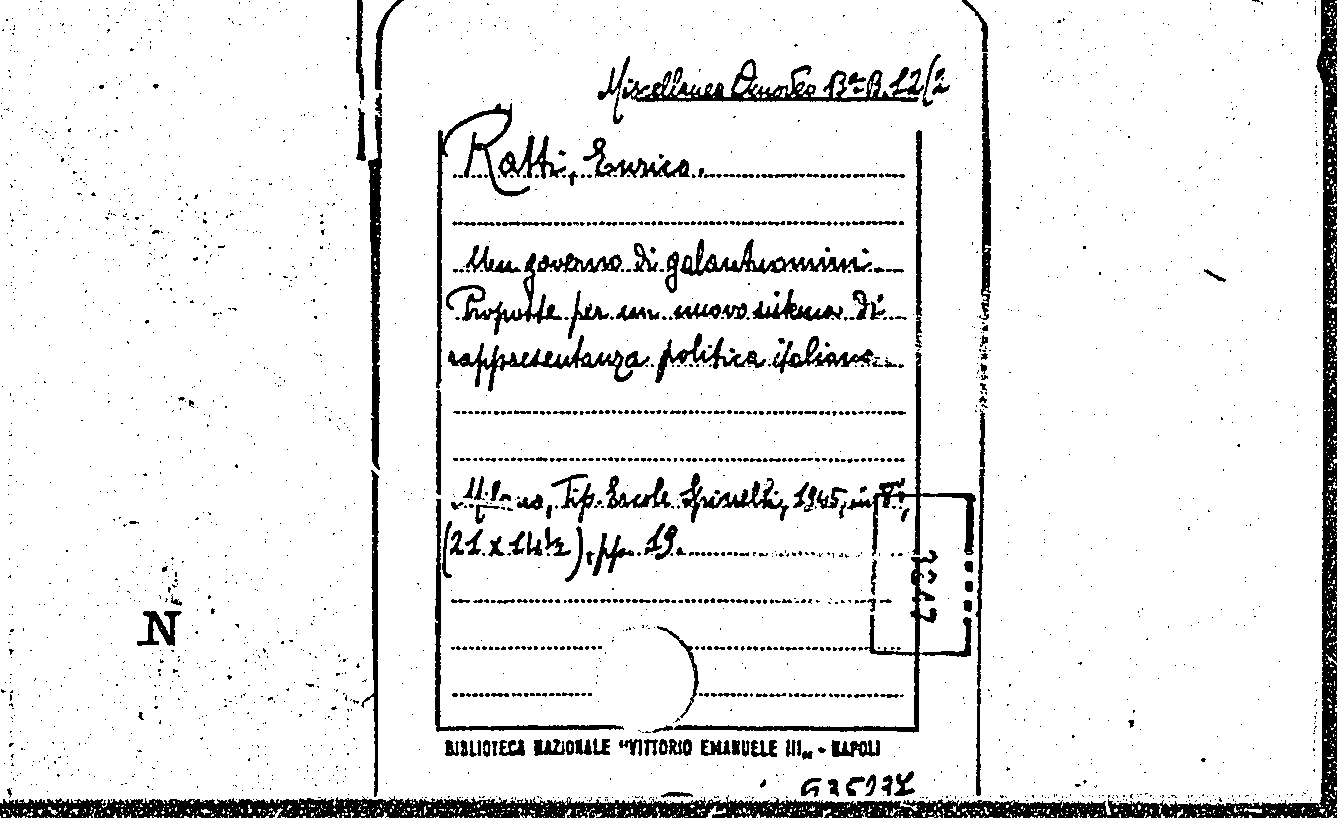 Miscellanea B.12/2
Ratti, Enrico.
Un governo di galantuomini.
Proposte per un nuovo sistema di
rappresentanza politica italiana.
Milano, Tip. Ercole Spinelli, 1945, in 8°,
(21 x 14½), pp. 19.
N
BIBLIOTECA NAZIONALE "VITTORIO EMANUELE III„ - NAPOLI